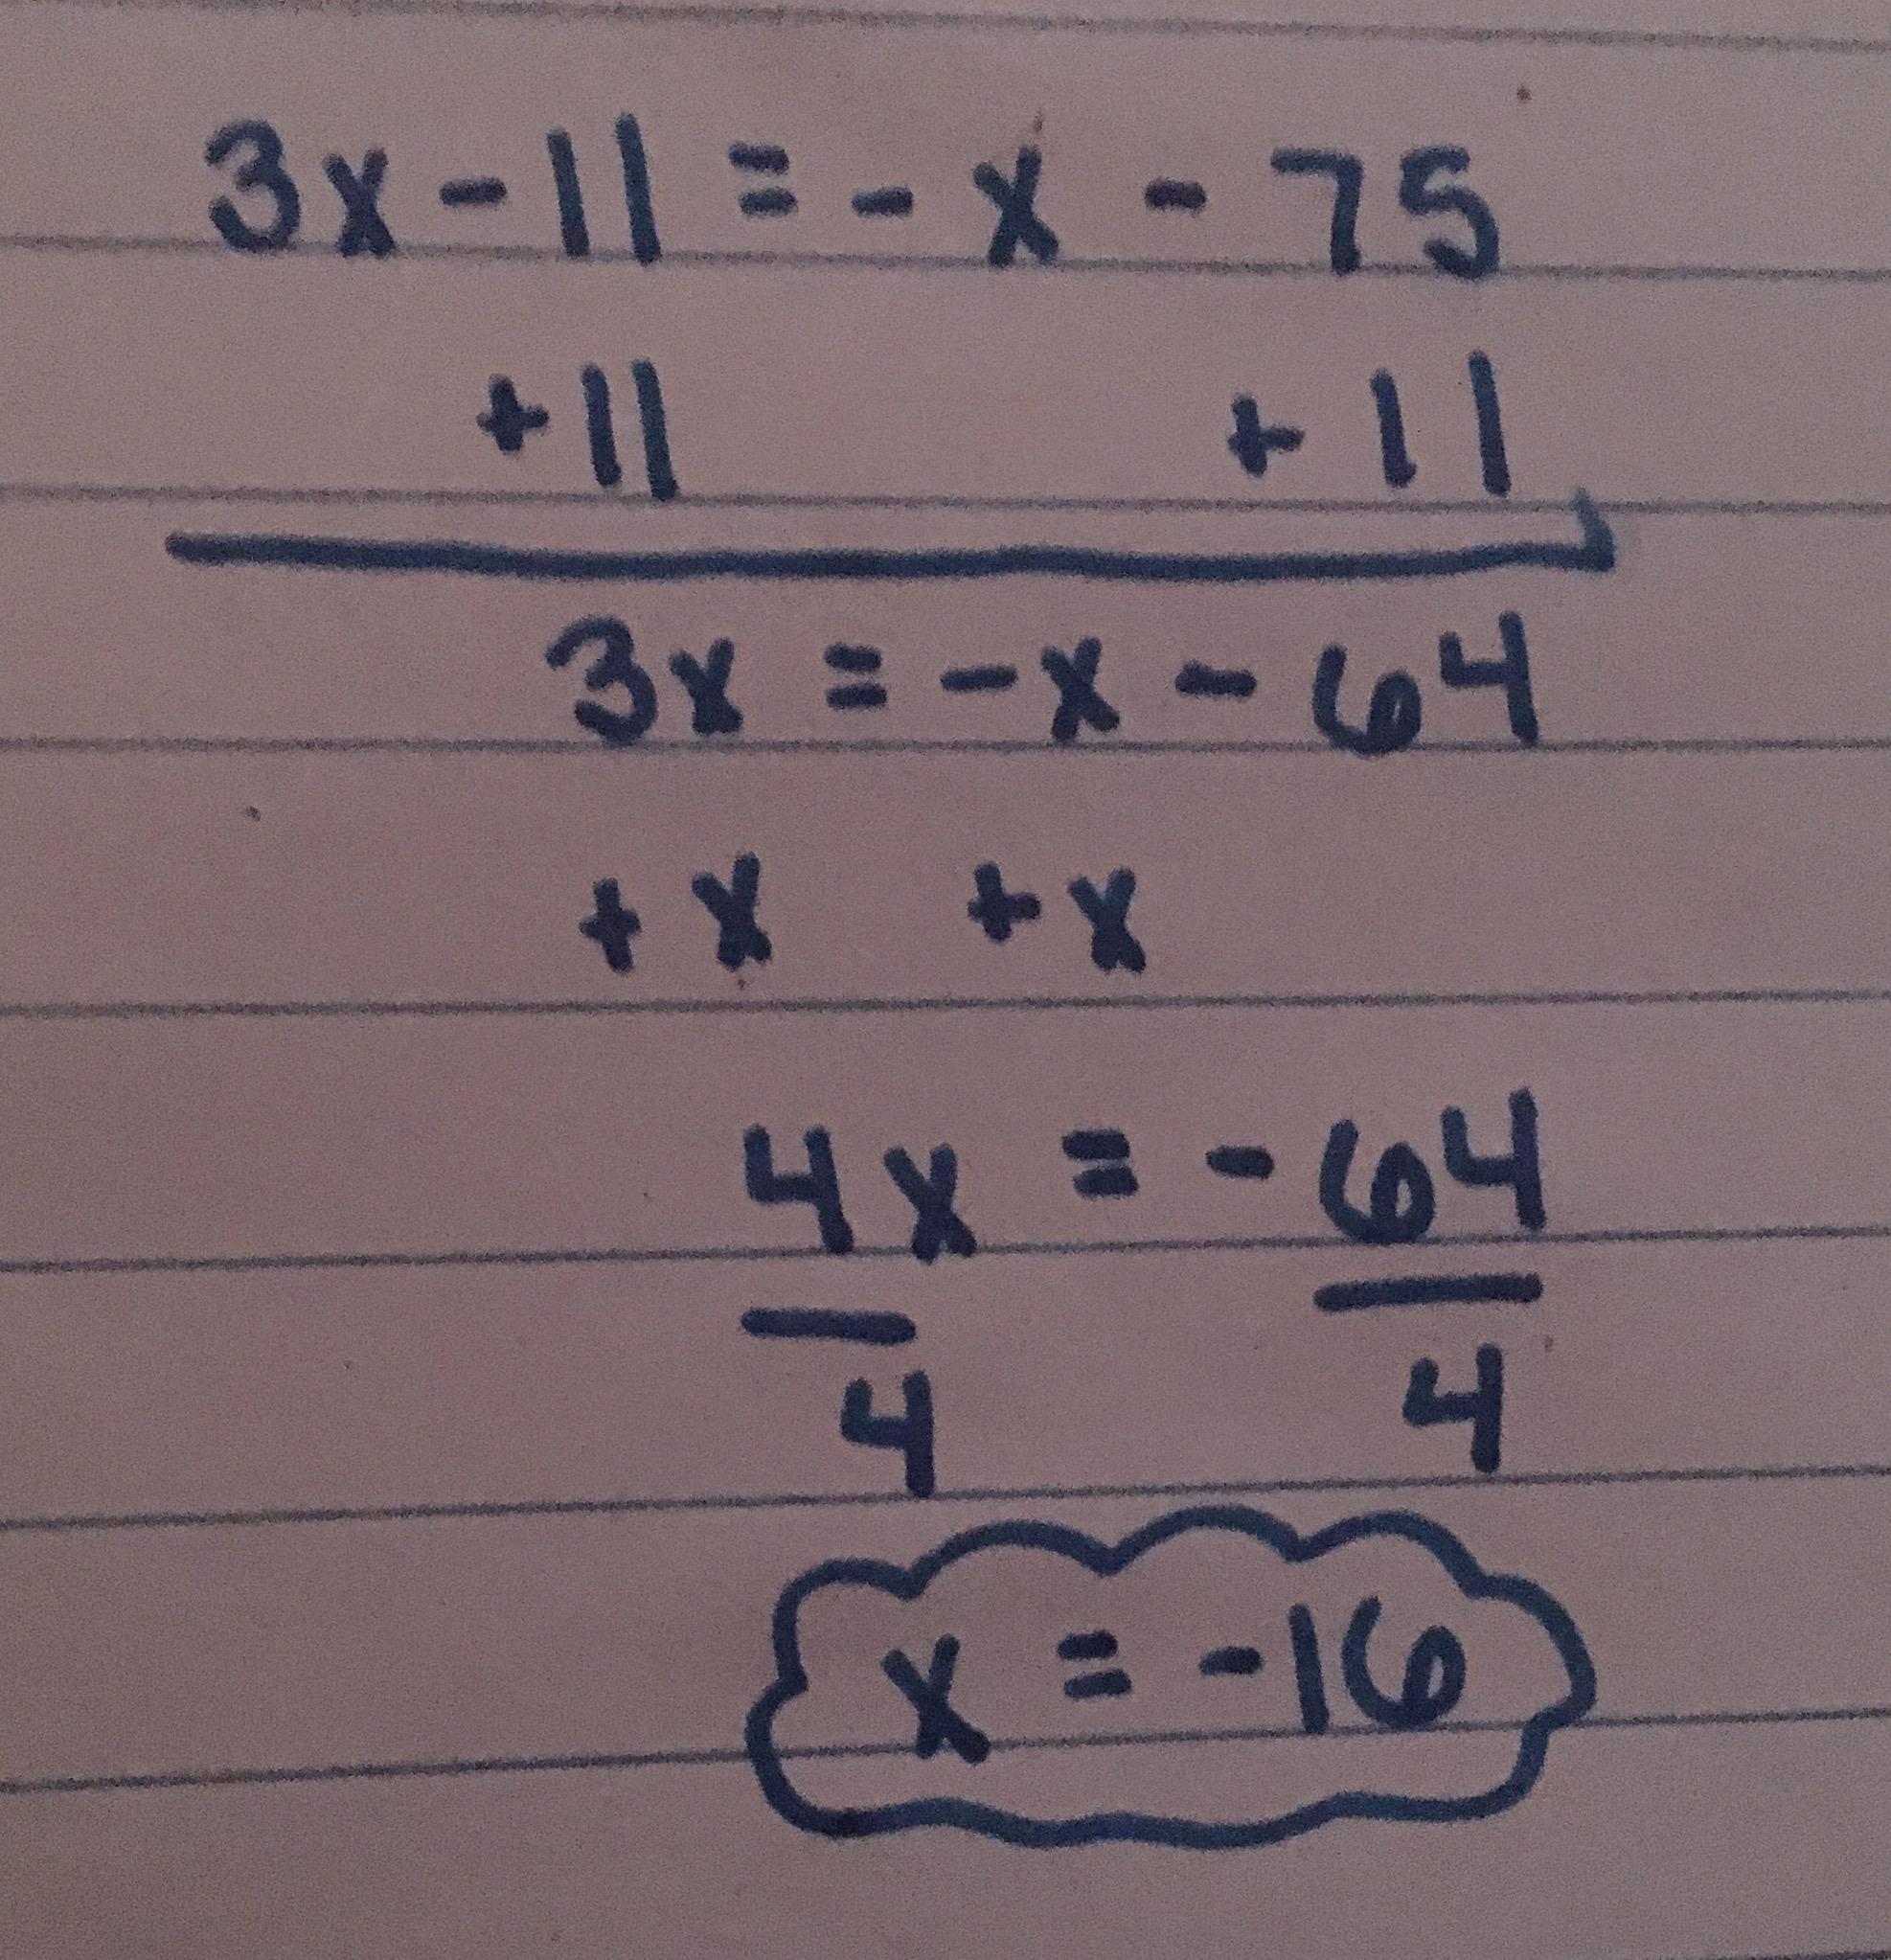 3x - 11 = - x - 75
+ 11 + 11
3x = - x - 64
+ x + x
4x = - 64
4 4
x = - 16